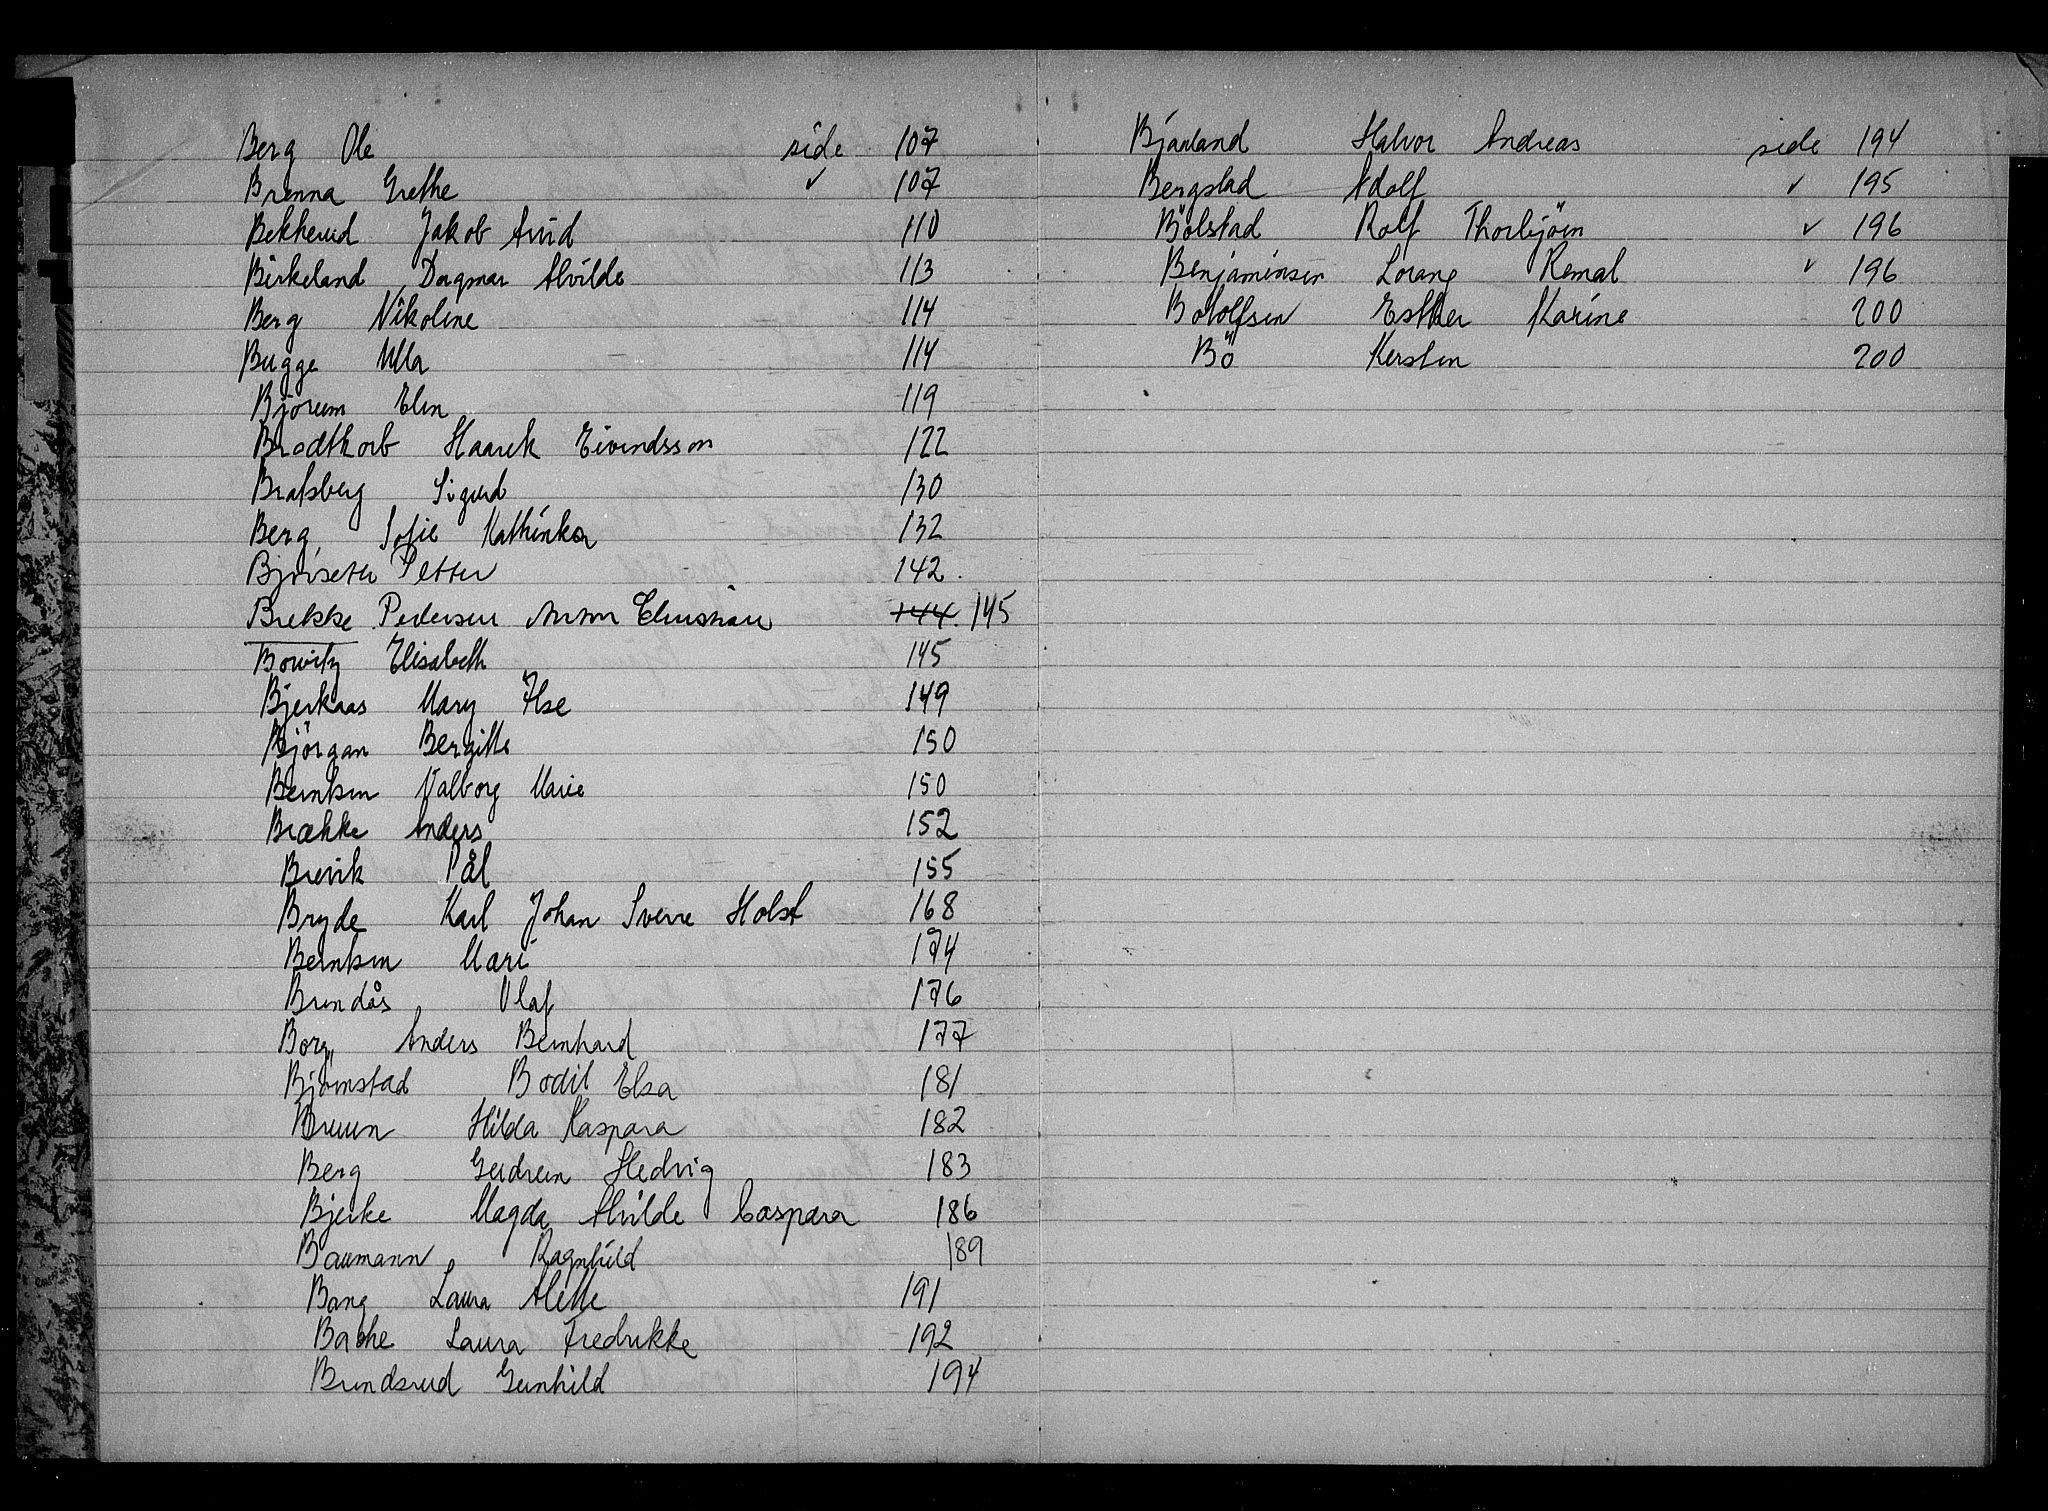 Berg Ole side 107
Brenna Grethe ✓ 107
Bekkerud Jakob Arvid 110
Birkeland Dagmar Alvilde 113
Berg Nikoline 114
Bugge Ulla 114
Bjorum Elin 119
Brodtkorb Haarek Eivindsson 122
Bratsberg Sigurd 130
Berg Sofie Kathinka 132
Bjørseth Petter 142.
Brekke Pedersen Anton Christian 144. 145
Bowitz Elisabeth 145
Bjerkaas Mary Ilse 149
Björgan Bergitte 150
Berntsen Valborg Marie 150
Brække Anders 152
Brevik Pål 155
Bryde Karl Johan Sverre Holst 168
Berntsen Mari 174
Brendås Olaf 176
Borg Anders Bernhard 177
Björnstad Bodil Elsa 181
Bruun Hilda Kaspara 182
Berg Gudrun Hedvig 183
Bjerke Magda Alvilde Caspara 186
Baumann Ragnhild 189
Bang Laura Alette 191
Bache Laura Fredrikke 192
Brendsrud Gunhild 194
Bjaaland Halvor Andreas side 194
Bergstad Adolf ✓ 195
Bölstad Rolf Thorbjörn ✓ 196
Benjaminsen Lorang Remal ✓ 196
Botolfsen Esther Karine 200
Bö Kersten 200